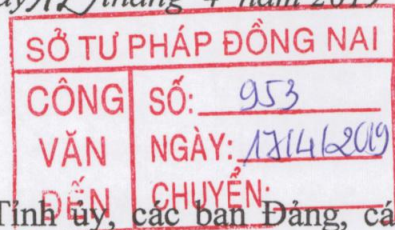 tháng 4 năm 2019
SỞ TƯ PHÁP ĐỒNG NAI
CÔNG VĂN ĐẾN
SỐ: 953
NGÀY: 17/4/2019
CHUYỂN:
Tỉnh ủy, các ban Đảng, cá